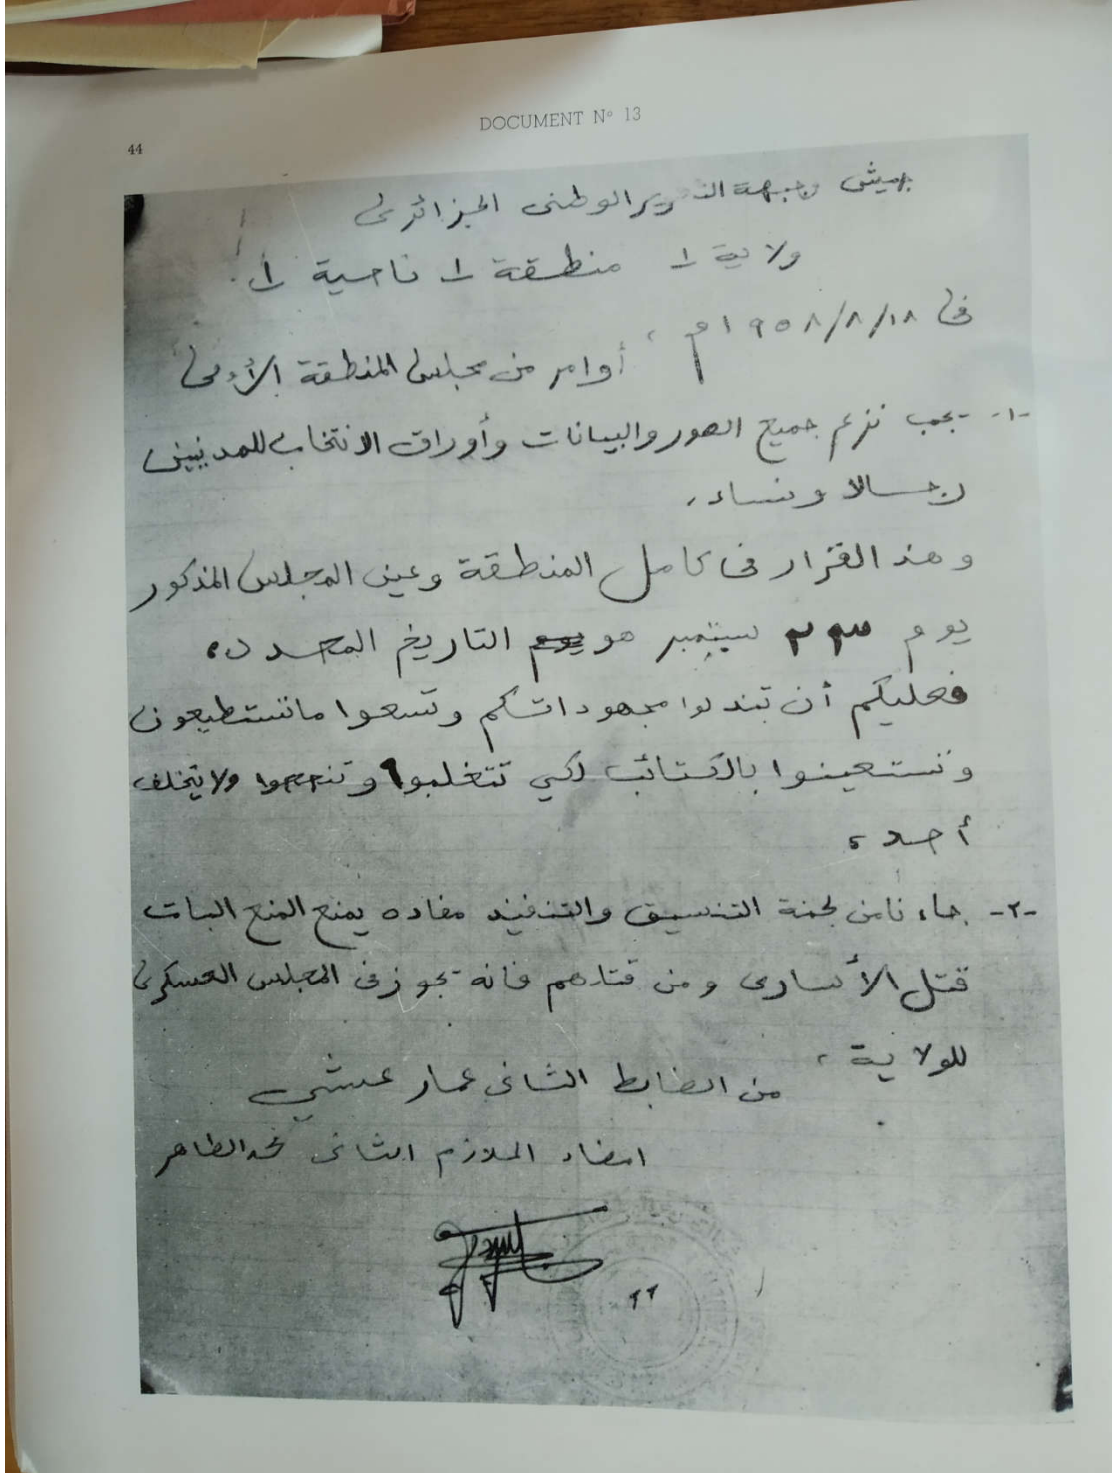 DOCUMENT Nº 13
44
جيش وجبهة التحرير الوطني الجزائري
ولاية ١ منطقة ١ ناحية ١.
في ١٩٥٨/٨/١٨م، أوامر من مجلس المنطقة الأولى
-١- يجب نزع جميع الصور والبيانات وأوراق الانتخاب للمدنيين
رجالا ونساء.
وهذ القرار في كامل المنطقة وعين المجلس المذكور
يوم ٢٣ سبتمبر هو يوم التاريخ المحدد.
فعليكم أن تبذلوا مجهوداتكم وتسعوا ما تستطيعون
وتستعينوا بالكتائب لكي تتغلبوا وتنجحوا ولا يتخلف
أحد.
-٢- جاءنا من لجنة التنسيق والتنفيذ مفاده يمنع المنع البات
قتل الأسارى ومن قتلهم فانه يجوز في المجلس العسكري
للولاية،
من الضابط الثاني عمار عشي
امضاء الملازم الثاني محمد الطاهر